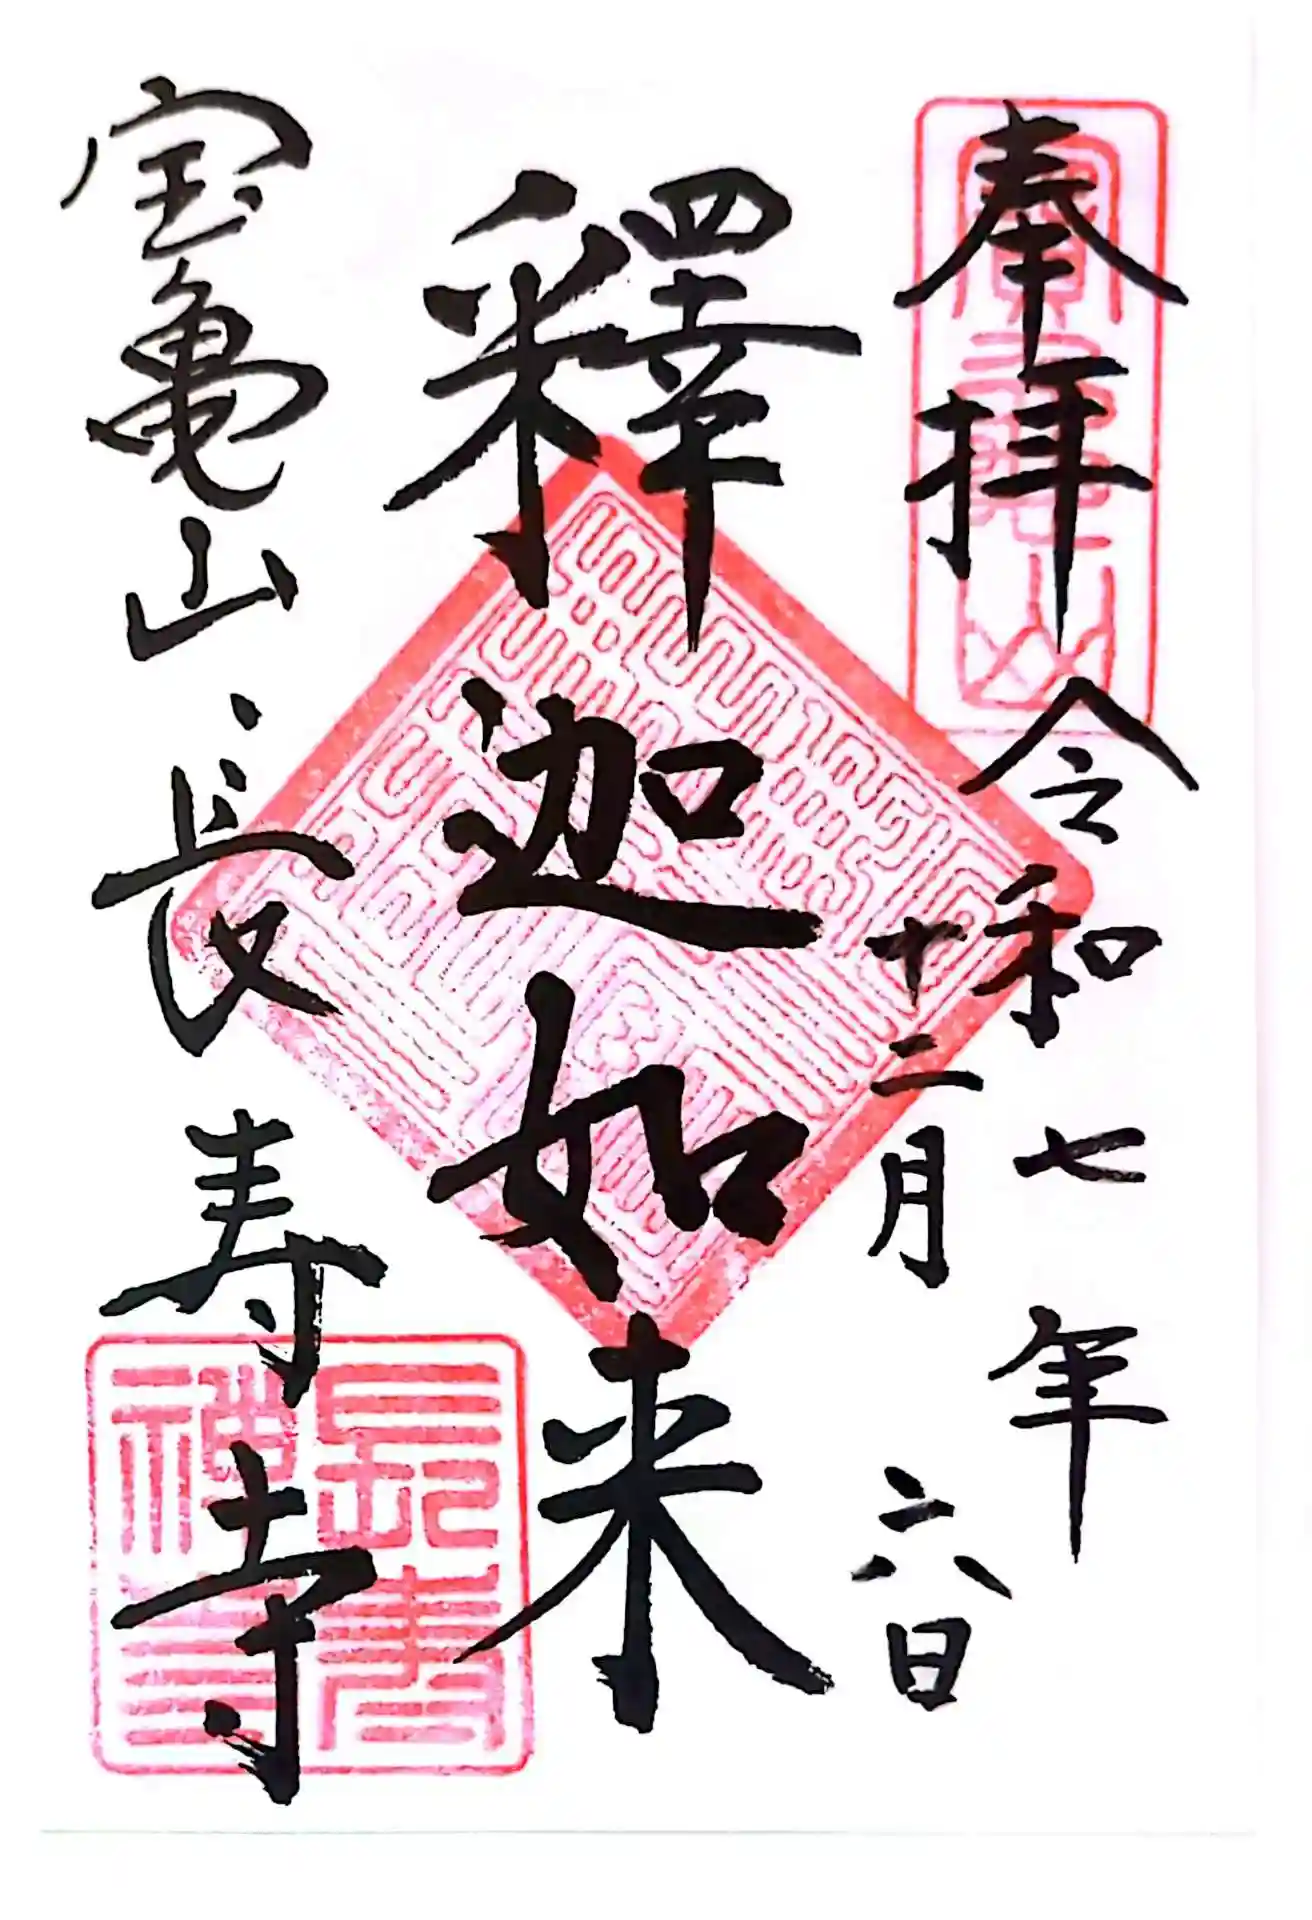 奉拝 令和七年
十二月六日
釋迦如来
宝亀山長寿寺
長寿禅寺